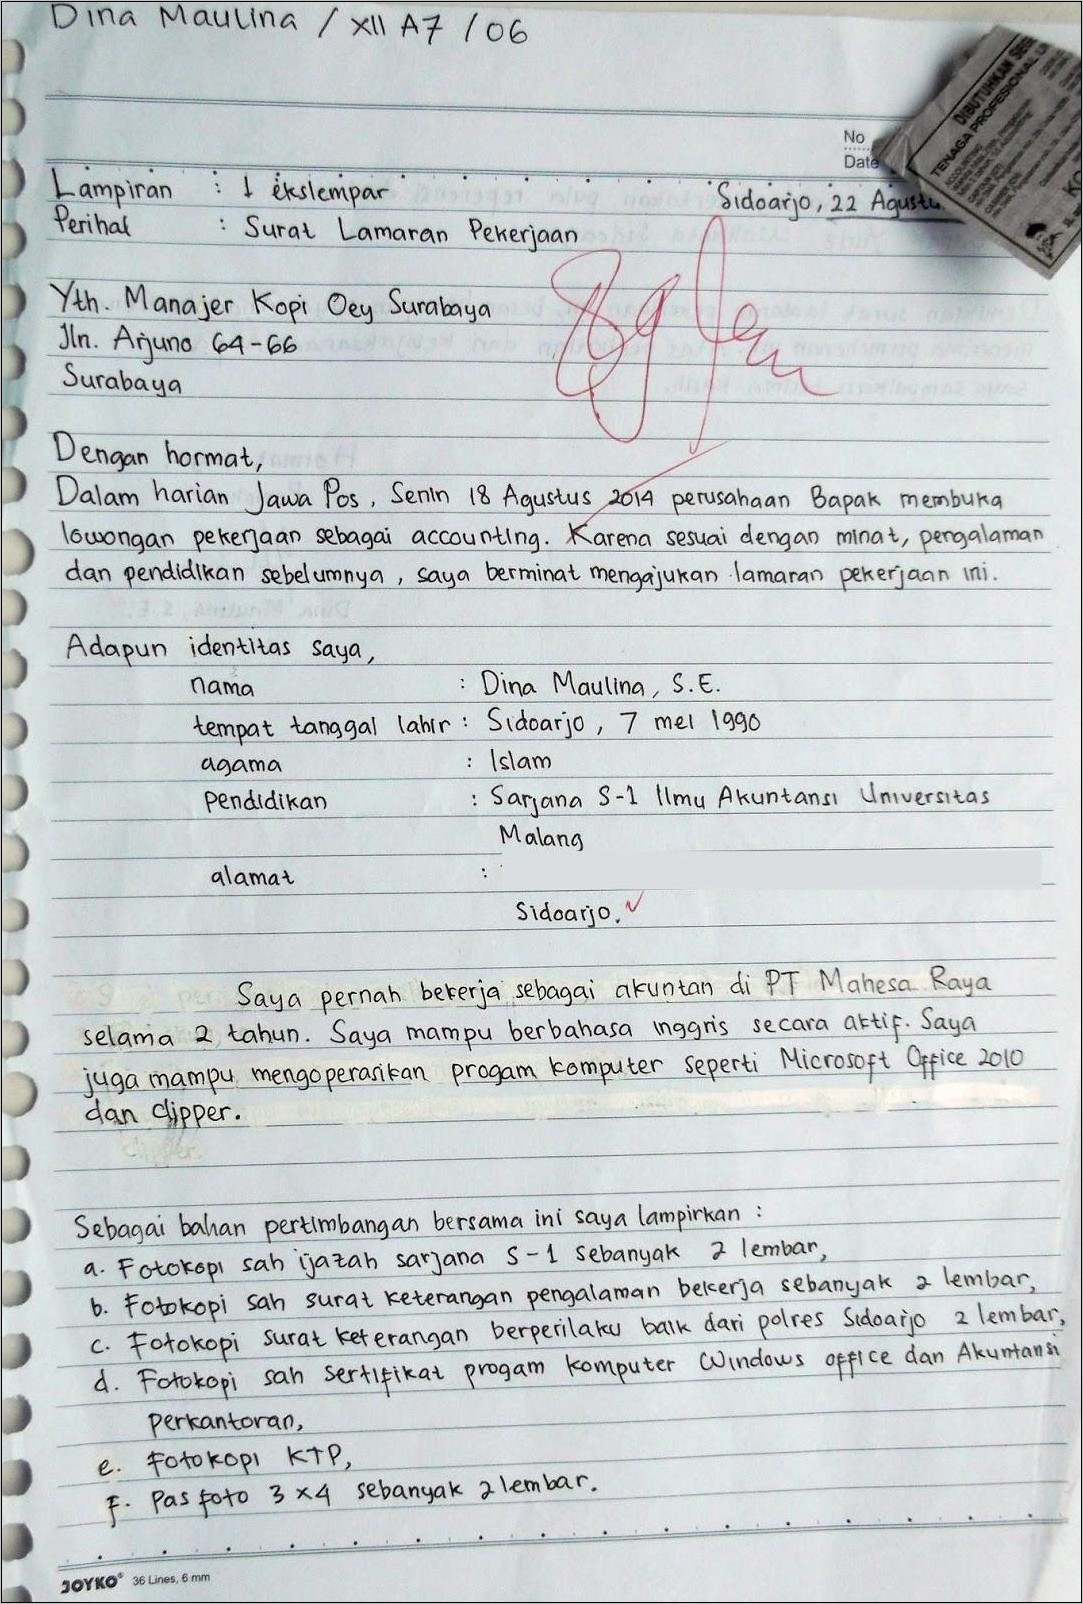 Dina Maulina / XII A7 / 06
DIBUTUHKAN
TENAGA PROFESIONAL
No
Date
Lampiran : 1 ekslempar Sidoarjo, 22 Agustu
Perihal : Surat Lamaran Pekerjaan
Yth. Manajer Kopi Oey Surabaya
Jln. Arjuno 64-66
Surabaya
Dengan hormat,
Dalam harian Jawa Pos, Senin 18 Agustus 2014 perusahaan Bapak membuka
lowongan pekerjaan sebagai accounting. Karena sesuai dengan minat, pengalaman
dan pendidikan sebelumnya, saya berminat mengajukan lamaran pekerjaan ini.
Adapun identitas saya,
nama : Dina Maulina, S.E.
tempat tanggal lahir : Sidoarjo, 7 mei 1990
agama : Islam
pendidikan : Sarjana S-1 Ilmu Akuntansi Universitas
Malang
alamat :
Sidoarjo.
Saya pernah bekerja sebagai akuntan di PT Mahesa Raya
selama 2 tahun. Saya mampu berbahasa inggris secara aktif. Saya
juga mampu mengoperasikan progam komputer seperti Microsoft Office 2010
dan clipper.
Sebagai bahan pertimbangan bersama ini saya lampirkan :
a. Fotokopi sah ijazah sarjana S-1 sebanyak 2 lembar,
b. Fotokopi sah surat keterangan pengalaman bekerja sebanyak 2 lembar,
c. Fotokopi surat keterangan berperilaku baik dari polres Sidoarjo 2 lembar,
d. Fotokopi sah sertifikat progam komputer Windows office dan Akuntansi
perkantoran,
e. Fotokopi KTP,
f. Pas foto 3 x 4 sebanyak 2 lembar.
JOYKO® 36 Lines, 6 mm